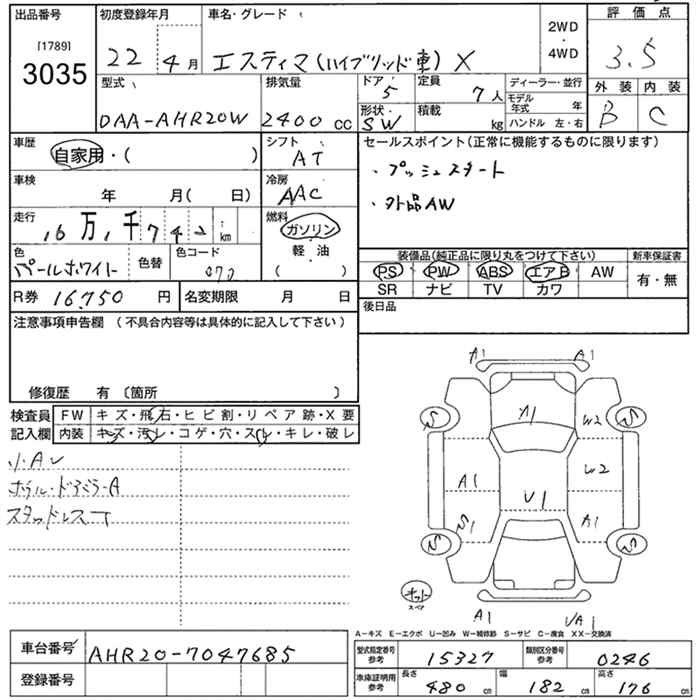 出品番号 初度登録年月 車名・グレード 2WD・4WD 評価点
[1789]
3035 22 4月 エスティマ(ハイブリッド車) X 3.5
型式 排気量 ドア 定員 ディーラー・並行 外装 内装
DAA-AHR20W 2400cc 5 7人 モデル年式 年 B C
形状・ SW 積載 kg ハンドル 左・右
車歴 自家用・( ) シフト AT セールスポイント(正常に機能するものに限ります)
・プッシュスタート
車検 年 月( 日) 冷房 AAC
・外品AW
走行 16万,1千742 km 燃料 ガソリン
軽・油
( )
装備品(純正品に限り丸をつけて下さい) 新車保証書
色 パールホワイト 色替 色コード 070
PS PW ABS エアB AW 有・無
SR ナビ TV カワ
R券 16,750円 名変期限 月 日
後日品
注意事項申告欄 (不具合内容等は具体的に記入して下さい)
修復歴 有 〔箇所 〕
検査員記入欄 FW キズ・飛石・ヒビ割・リペア跡・X要
内装 キズ・汚レ・コゲ・穴・スレ・キレ・破レ
小・A
ホイル・ドアミラーA
スタッドレスT
A1 A1
A1
S W2 S
A1 W2
U1
S A1 S
スペア
A1 UA1
A-キズ E-エクボ U-凹み W-補修跡 S-サビ C-腐食 XX-交換済
車台番号 AHR20-7047685
型式指定番号 参考 15327 類別区分番号 参考 0246
登録番号
車庫証明用 参考 長さ 480 cm 幅 182 cm 高さ 176 cm